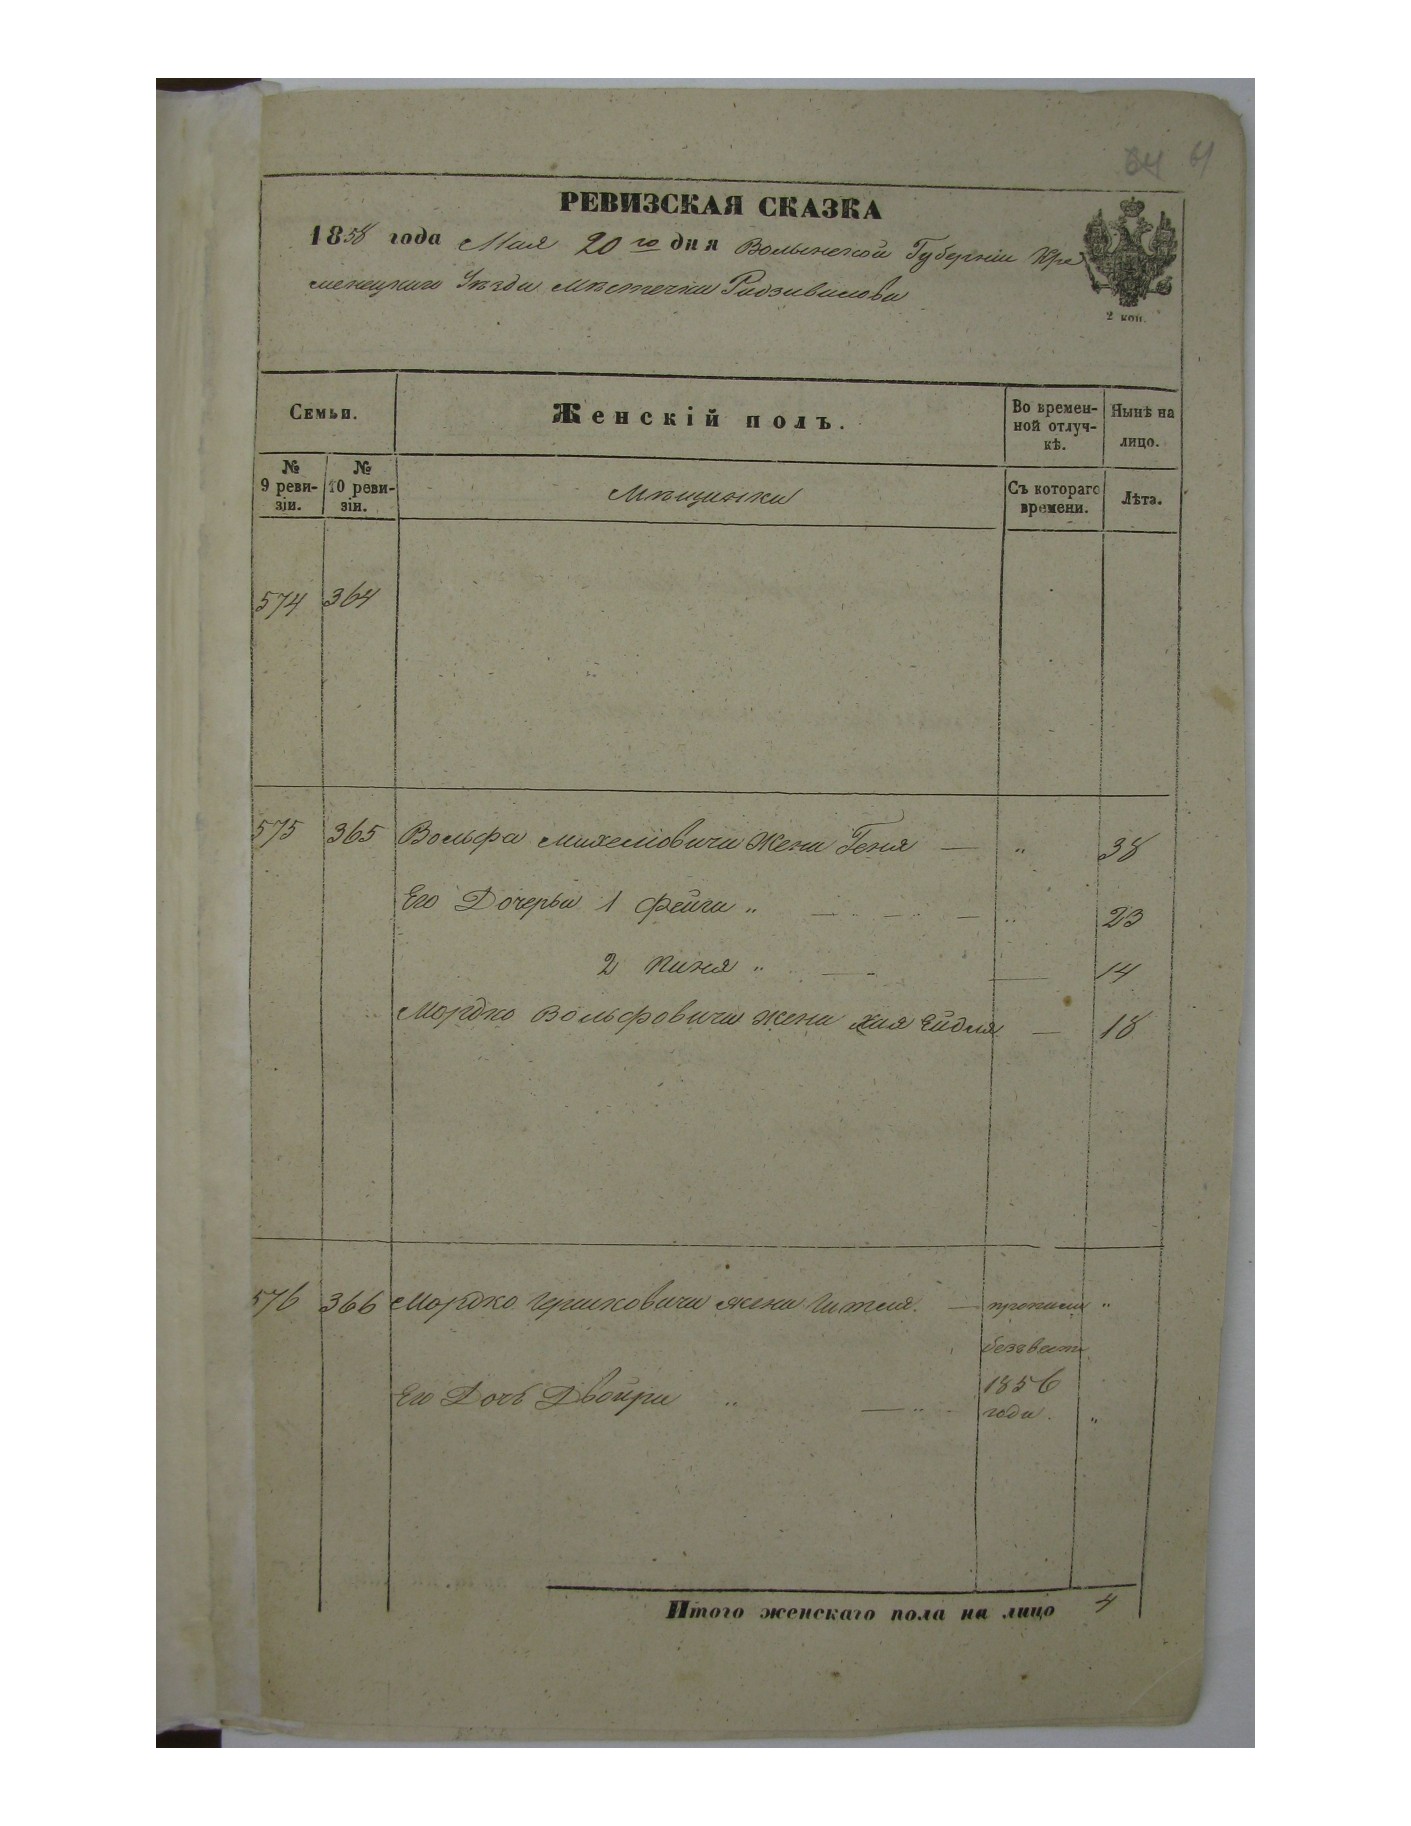 61
РЕВИЗСКАЯ СКАЗКА
1858 года Мая 20го дня Волынской Губерніи Кре
менецкаго Уѣзда Мѣстечка Радзивилова
2 коп.
Семьи. Женскій полъ. Во времен-ной отлуч-кѣ. Нынѣ на лицо.
№ 9 реви-зіи. № 10 реви-зіи. Мѣщанки Съ котораго времени. Лѣта.
574 364
575 365 Вольфа Михелiовича Жена Геня — „ 38
Его Дочерьи 1 Фейга „ — — — „ 23
2 Киня „ — — 14
Мордко Вольфовича жена Хая Ейдля — 18
576 366 Мордко Гершковича жена Гитля. — пропали „
безвести
Его Дочь Двойра „ — „ 1856
года. „
Итого женскаго пола на лицо 4